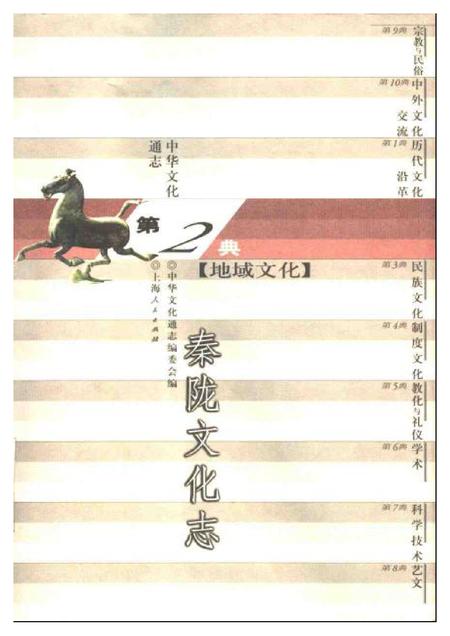 第9典
宗教与民俗
第10典
中外文化
交流
第1典
历代文化
沿革
中华文化
通志
第2典
【地域文化】
第3典
民族文化
◎中华文化通志编委会编
◎上海人民出版社
第4典
制度文化
秦陇文化志
第5典
教化与礼仪
第6典
学术
第7典
科学技术
第8典
艺文